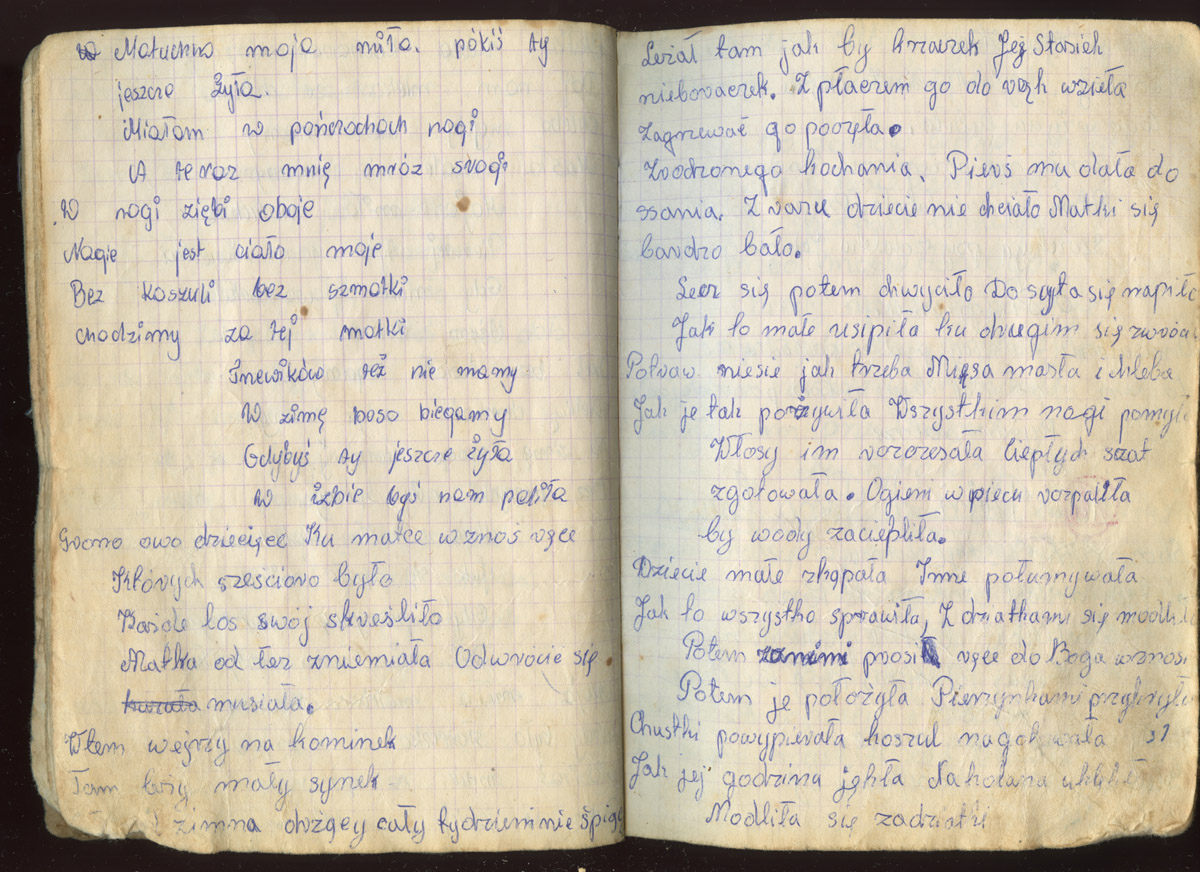 Matuchno moja miła. pókiś ty
jeszcze żyła.
Miałam w pończochach nogi
A teraz mnię mróz srogi
W nogi ziębi oboje
Nagie jest ciało moje
Bez koszuli bez szmatki
chodzimy za tej matki
Tnewików też nie mamy
W zimę boso biegamy
Gdybyś ty jeszcze żyła
W izbie byś nam paliła
Grono owo dziecięce Ku matce wznoś ręce
Których sześcioro było
Każde los swój skreśliło
Matka od łez zniemiała Odwrócie się
musiała.
Wtem wejrzy na kominek
Tam leży mały synek
zimna drżący cały tydzień nie
Leżał tam jak by krzaczek Jej Starich
nieboraczek. Z płaczem go do rąk wzieła
Zagrzewać go poczęła.
Zwodzonego kochania. Pierś mu dała do
ssania. Z razu dziecie nie chciało Matki się
bardzo bało.
Lecz się potem chwyciło Do syta się napiło
Jak to małe usipiła ku drugim się
Potraw niesie jak trzeba Mięsa masła i chleba
Jak je tak pożywiła Wszystkim nogi
Włosy im rozczesała Ciepłych szat
zgotowała. Ogień w piecu rozpaliła
by wody zaciepliła.
Dziecie małe zkąpała Inne połumywała
Jak to wszystko sprawiła, Z dziatkami się modliła
Potem prosi ręce do Boga wznosi
Potem je położyła Pierzynkami przykryła
Chustki powypierała koszul nagotowała
Jak jej godzina Na kolana
Modliła się zadziatki